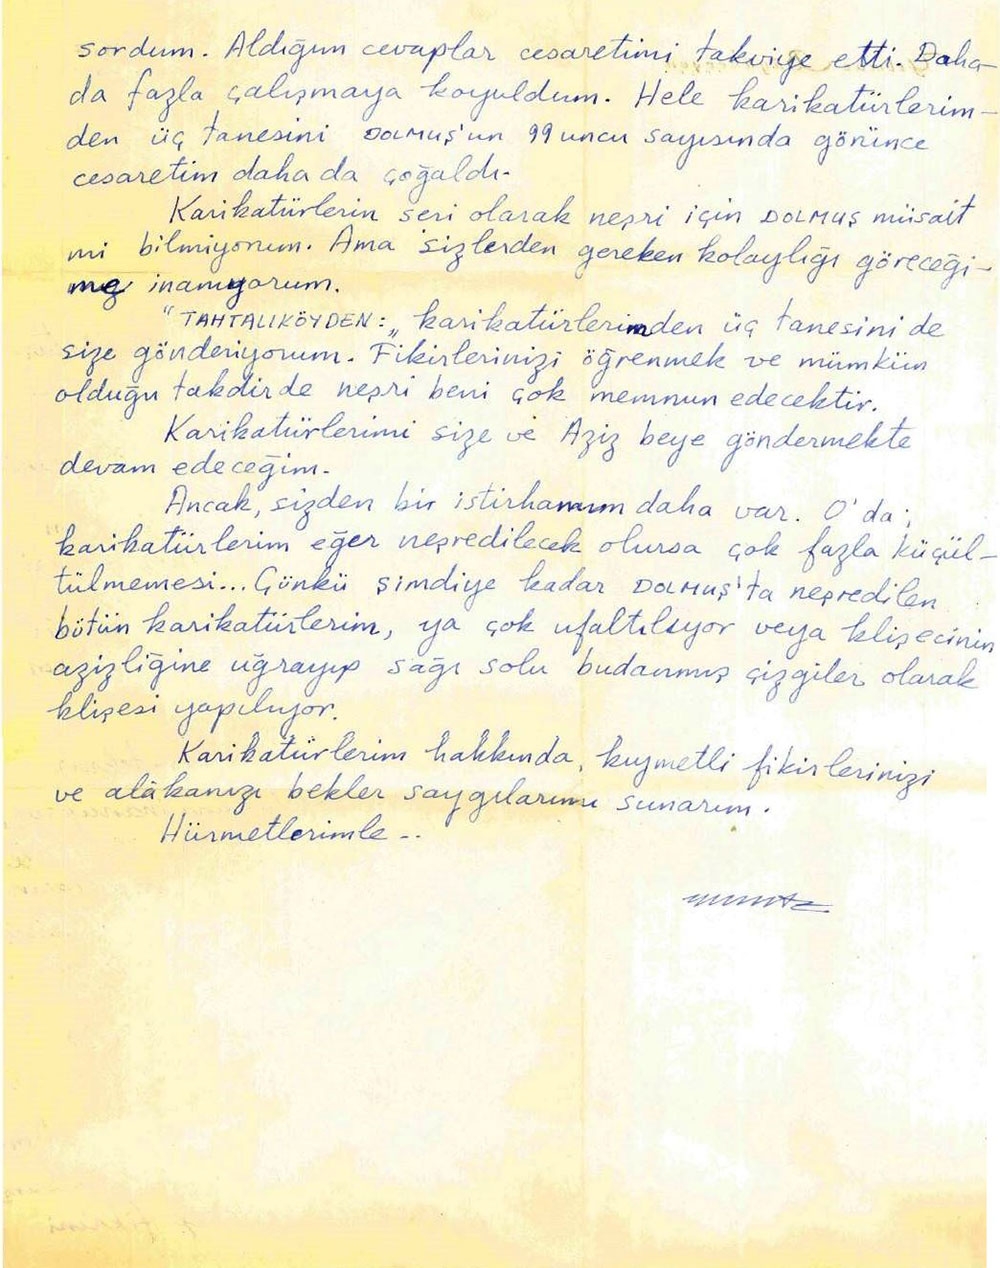 sordum. Aldığım cevaplar cesaretimi takviye etti. Daha
da fazla çalışmaya koyuldum. Hele karikatürlerim-
den üç tanesini DOLMUŞ'un 99 uncu sayısında görünce
cesaretim daha da çoğaldı.
Karikatürlerin seri olarak neşri için DOLMUŞ müsait
mi bilmiyorum. Ama sizlerden gereken kolaylığı göreceği-
me inanıyorum.
"TAHTALIKÖYDEN:„ karikatürlerimden üç tanesini de
size gönderiyorum. Fikirlerinizi öğrenmek ve mümkün
olduğu takdirde neşri beni çok memnun edecektir.
Karikatürlerimi size ve Aziz beye göndermekte
devam edeceğim.
Ancak, sizden bir istirhamım daha var. O'da;
karikatürlerim eğer neşredilecek olursa çok fazla küçül-
tülmemesi... Çünkü şimdiye kadar DOLMUŞ'ta neşredilen
bütün karikatürlerim, ya çok ufaltılıyor veya klişecinin
azizliğine uğrayıp sağı solu budanmış çizgiler olarak
klişesi yapılıyor.
Karikatürlerim hakkında, kıymetli fikirlerinizi
ve alâkanızı bekler saygılarımı sunarım.
Hürmetlerimle ..